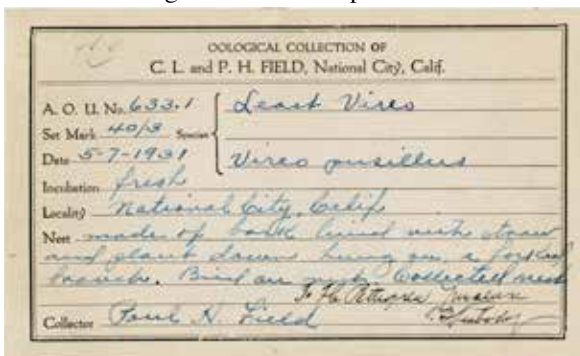 OOLOGICAL COLLECTION OF
C. L. and P. H. FIELD, National City, Calif.
A. O. U. No. 633.1
Least Vireo
Set Mark 40/3 Species
Date 5-7-1931
Vireo pusillus
Incubation fresh
Locality National City, Calif
Nest made of bark lined with straw
and plant down hung on a forked
branch. Bird on nest Collected nest
Collector Paul H. Field